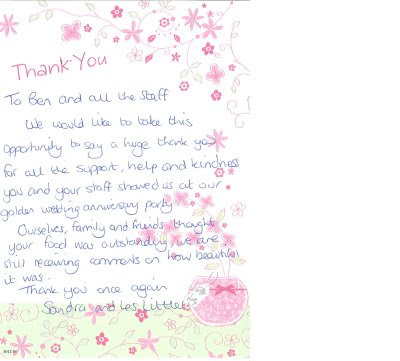 Thank You
To Ben and all the Staff
We would like to take this
opportunity to say a huge thank you
for all the support, help and kindness
you and your staff showed us at our
golden wedding anniversary party
Ourselves, family and friends thought
your food was outstanding, we are
still receiving comments on how beautiful
it was.
Thank you once again
Sandra and Les Littler